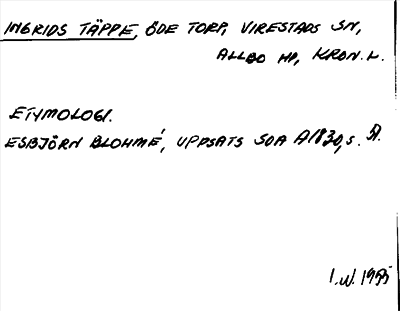 INGRIDS TÄPPE, ÖDE TORP, VIRESTADS SN,
ALLBO HD, KRON. L.
ETYMOLOGI.
ESBJÖRN BLOHMÉ, UPPSATS SOA A1830, S. 51.
I.W. 1955